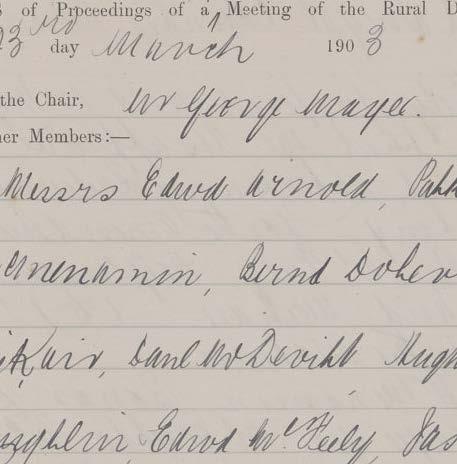 of Proceedings of a Meeting of the Rural D
23rd day March 1903
the Chair, Mr George Magee.
Members:—
Messrs Edwd Arnold,
McMenamin, Bernd Doher
Danl McDevitt Hugh
Edwd McFeely, Jas